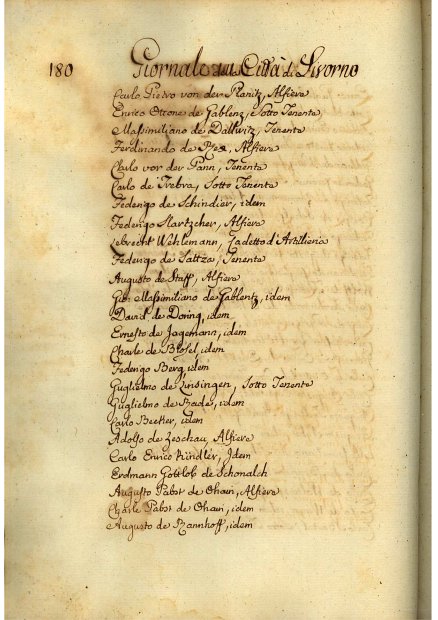 180 Giornale della Città di Livorno
Carlo Pietro von der Planitz, Alfiere
Enrico Ottone de Gablenz, Sotto Tenente
Massimiliano de Dallwitz, Tenente
Ferdinando de Alfiere
Carlo vor der Pann, Tenente
Carlo de Trebra, Sotto Tenente
Federigo de Schindler, idem
Federigo Hartzcher, Alfiere
Lebrecht Wehlemann, Cadetto d'Artilieria
Federigo de Tenente
Augusto de Staff, Alfiere
Gio: Massimiliano de Gablentz, idem
David de Doring, idem
Ernesto de Jagemann, idem
Charle de Brosel, idem
Federigo Berg, idem
Guglielmo de Linsingen, Sotto Tenente
Guglielmo de Bade, idem
Carlo Becker, idem
Adolfo de Zeschau, Alfiere
Carlo Enrico Kindler, Idem
Erdmann Gottlob de Schonalch
Augusto Pabst de Ohain, Alfiere
Charle Pabst de Ohain, idem
Augusto de Rannhoff, idem